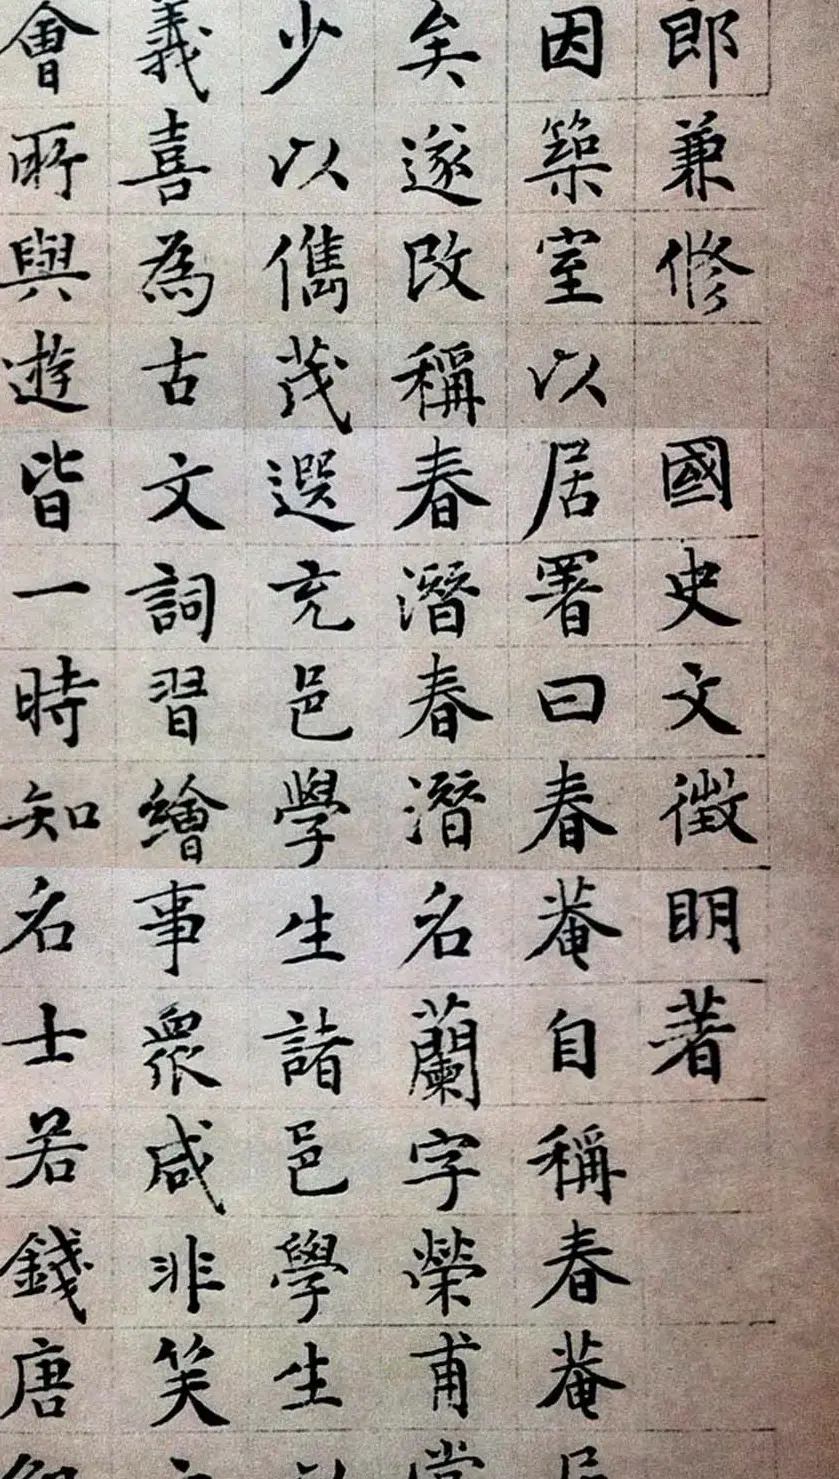 郎兼修 國史文徵明著
因築室以居署曰春菴自稱春菴
矣遂改稱春潛春潛名蘭字榮甫
少以儁茂選充邑學生諸邑學生
義喜為古文詞習繪事眾咸非笑
會所與遊皆一時知名士若錢唐